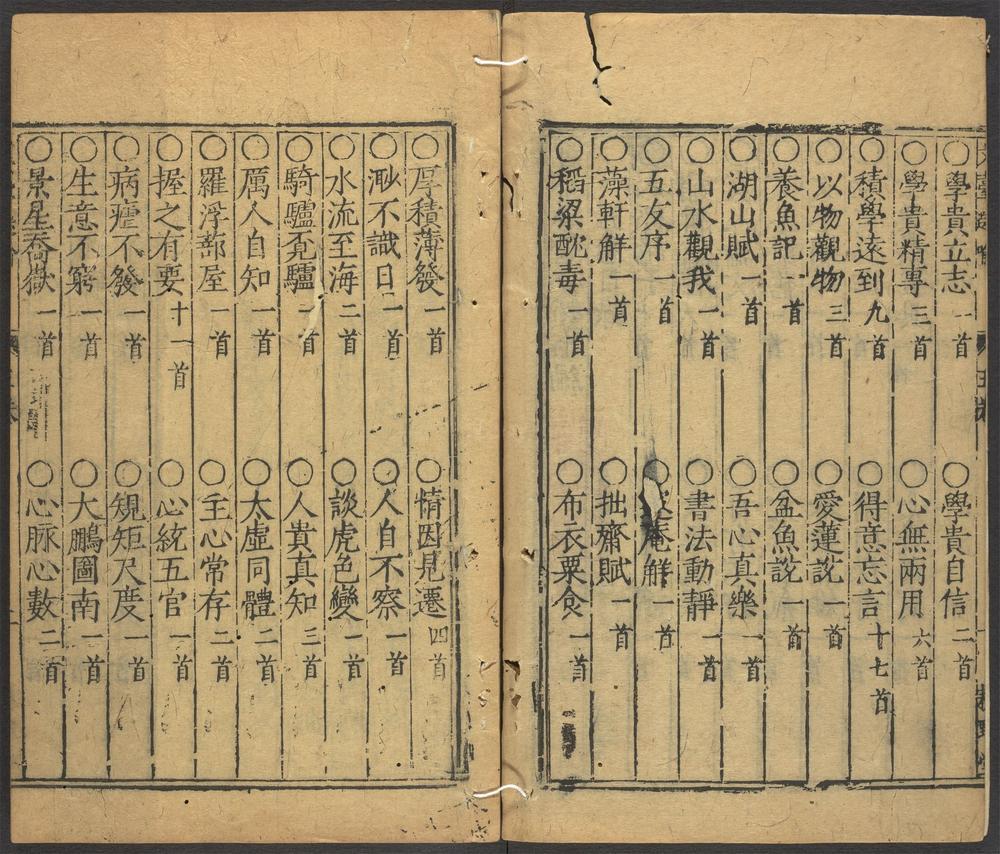 ○學貴立志一首
○學貴自信二首
○學貴精專三首
○心無兩用六首
○積學遠到九首
○得意忘言十七首
○以物觀物三首
○愛蓮說一首
○養魚記一首
○盆魚說一首
○湖山賦一首
○吾心真樂一首
○山水觀我一首
○書法動靜一首
○五友序一首
○庵解一首
○藻軒解一首
○拙齋賦一首
○稻粱酖毒一首
○布衣粟食一首
○厚積薄發一首
○情因見遷四首
○渺不識日一首
○人自不察一首
○水流至海二首
○談虎色變一首
○騎驢覓驢一首
○人貴真知三首
○厲人自知一首
○太虛同體二首
○羅浮蔀屋一首
○主心常存二首
○握之有要十一首
○心統五官一首
○病瘧不發一首
○規矩尺度一首
○生意不窮一首
○大鵬圖南一首
○景星喬嶽一首
○心脉心數二首